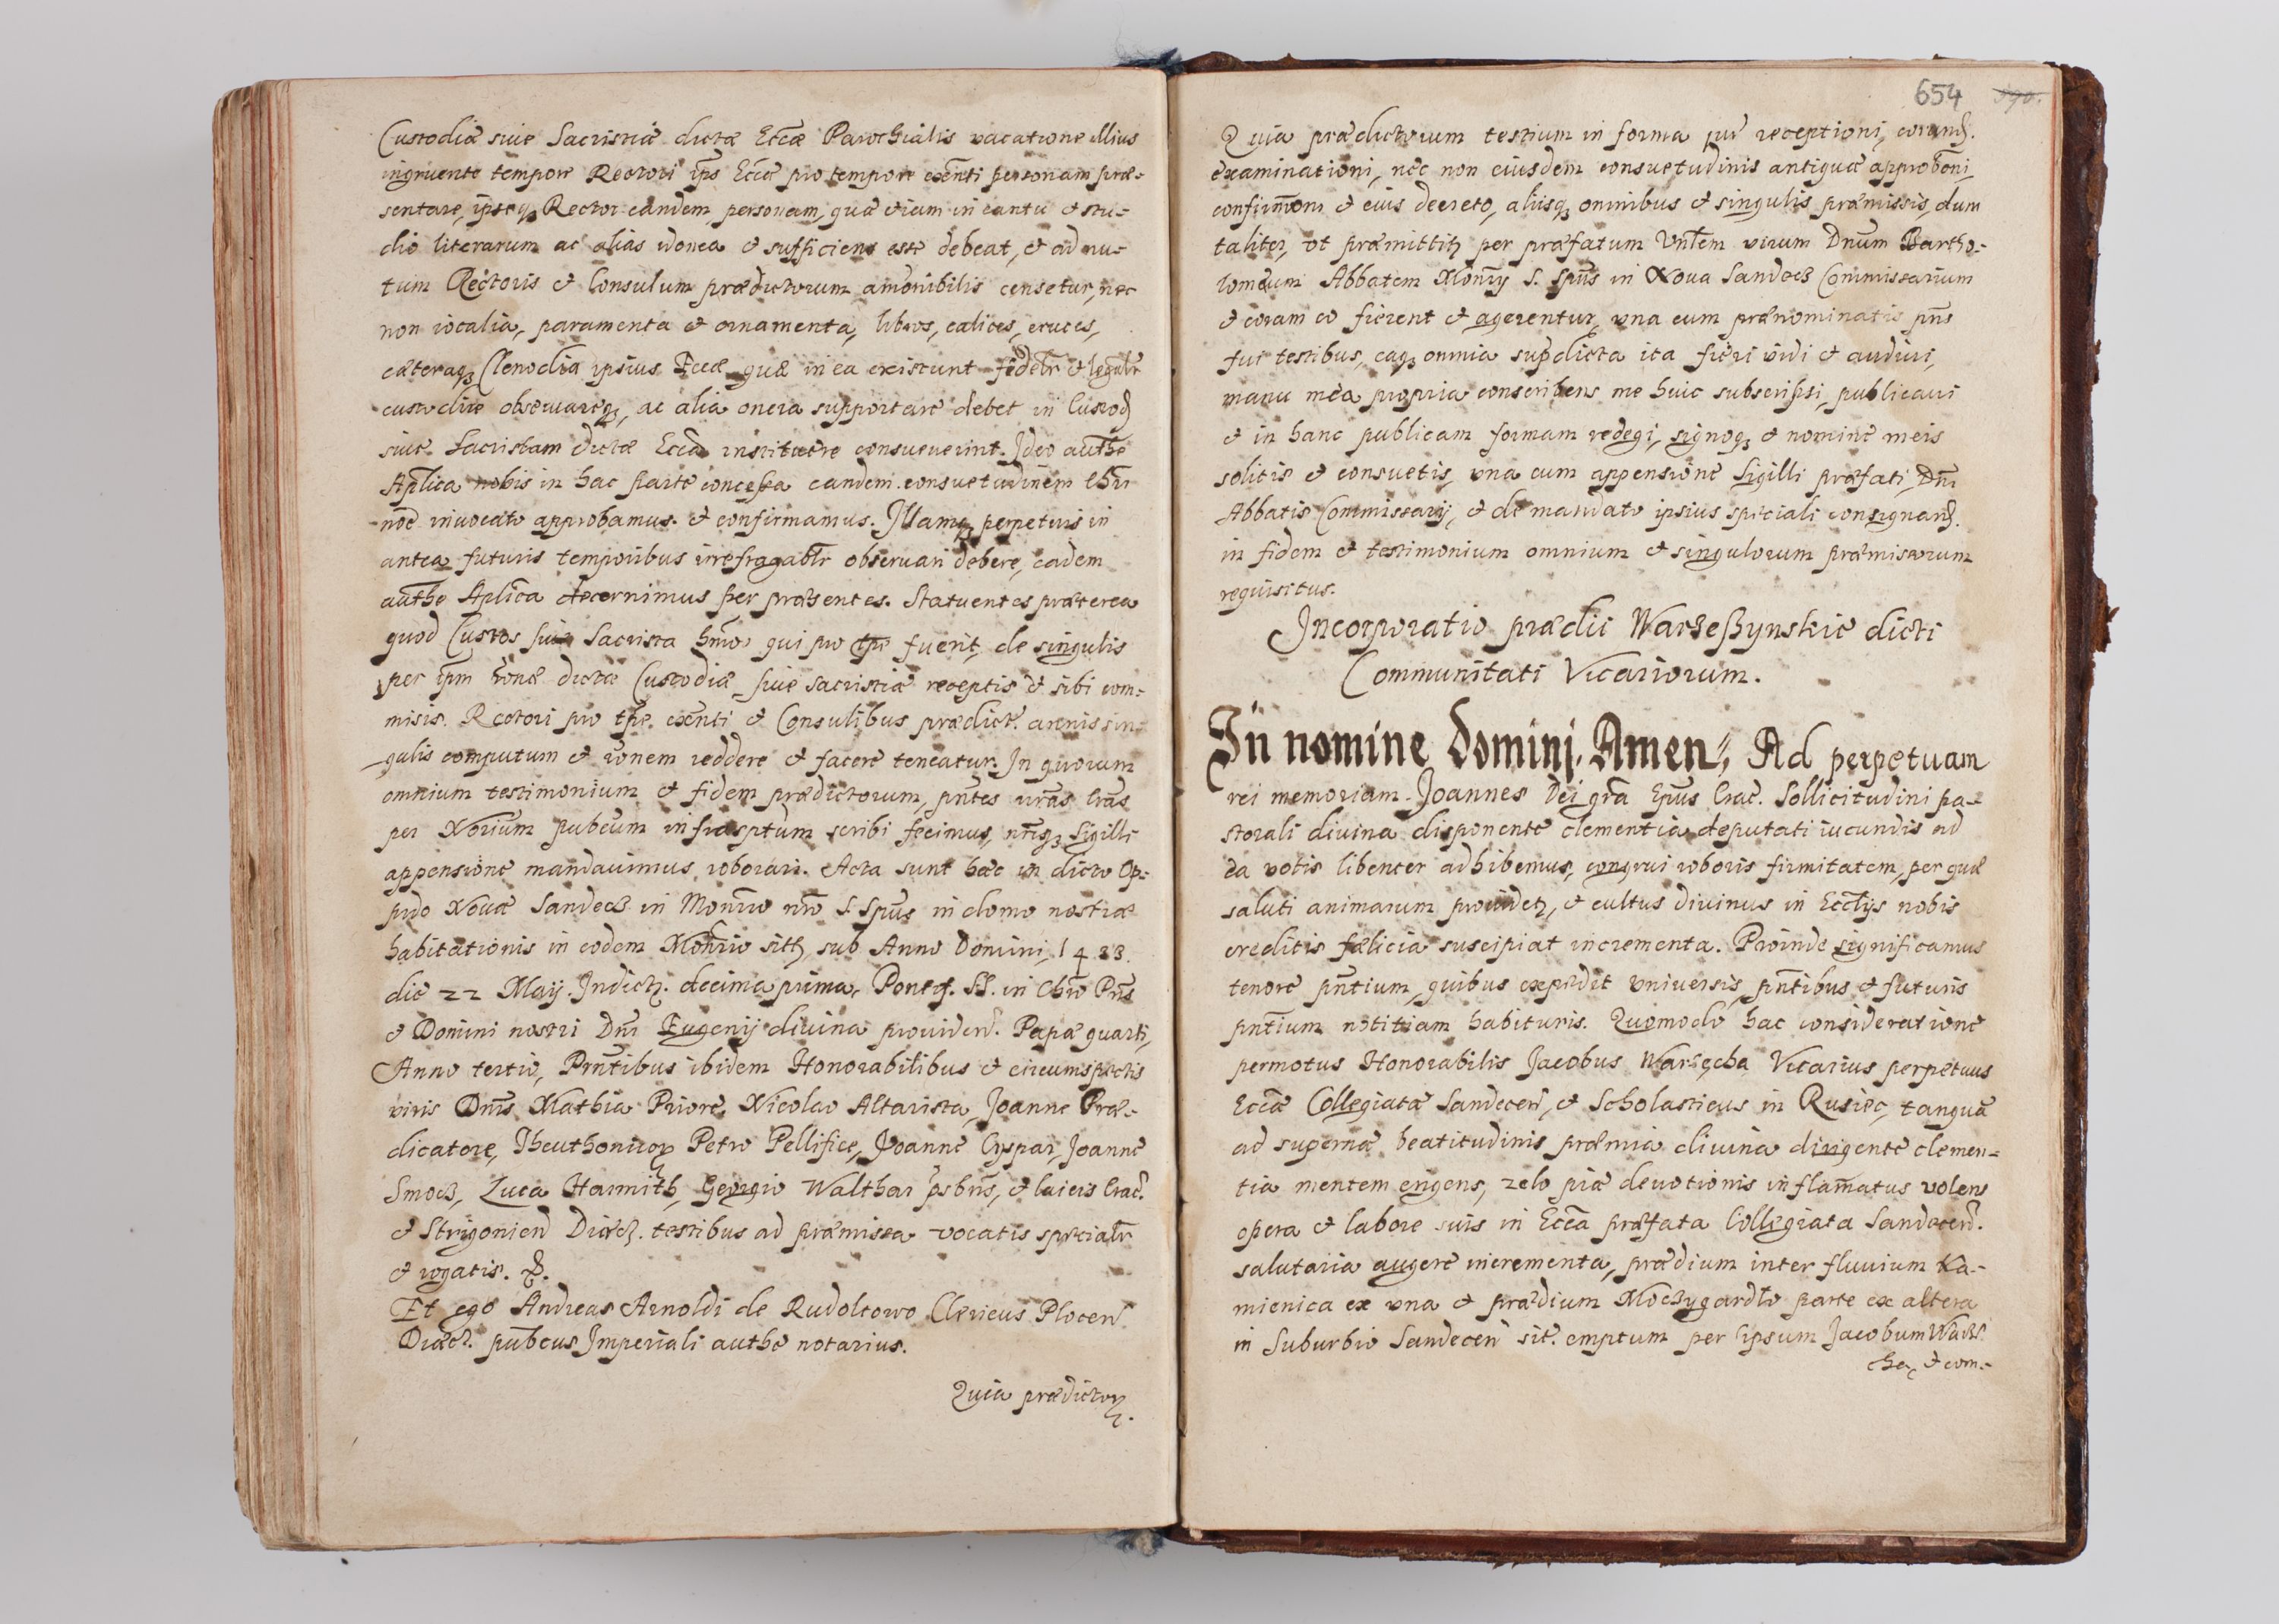 Custodiæ siue Sacristiæ dictæ Eccæ Parochialis vacatione illius
ingruente tempore Rectori ips Eccæ pro tempore exñti personam præ-
sentare, ipseq₃ Rector eandem personam, quæ etiam in cantu et stu-
dio literarum ac alias idonea et sufficiens esse debeat, et ad nu-
tum Rectoris et Consulum prædictorum amonibilis censetur, nec
non iocalia, paramenta et ornamenta, libros, calices, cruces,
cæteraq₃ Clenodia ipsius Eccæ quæ in ea existunt fidelr et legalr
custodire obseruareq₃, ac alia onera supportare debet in Custod
siue Sacristam dictæ Eccæ instituere consueuerint. Ideo authe
Aplica nobis in hac parte concessa eandem consuetudinem Chri
noē inuocato approbamus et confirmamus. Illamq₃ perpetuis in
antea futuris temporibus irrefragablr obseruari debere, eadem
authe Aplica decernimus per præsentes. Statuentes præterea
quod Custos siue Sacrista hmōi qui pro tpe fuerit, de singulis
per ipm rōne dictæ Custodiæ siue sacristiæ receptis et sibi com-
misis. Rectori pro tpe exñti et Consulibus prædict. annis sin-
gulis computum et rōnem reddere et facere teneatur. In quorum
omnium testimonium et fidem prædictorum, pñtes nras lras
per Norium pubcum infrasptum scribi fecimus, nriq₃ Sigilli
appensione mandauimus roborari. Acta sunt hæc in dicto Op-
pido Nouæ Sandecz in Monrio nro S. Spus in domo nostræ
habitationis in eodem Monrio sitt, sub Anno Domini, 1433.
die 22 Maij. Indict. decima prima, Pontif. SS. in Chro Pris
et Domini nostri Dni Eugenij diuina prouiden. Papæ quarti,
Anno tertio, Prntibus ibidem Honorabilibus et circumspectis
viris Dnis Mathia Priore, Nicolao Altarista, Joanne Præ-
dicatore, Theuthonicor Petro Pellifice, Joanne Cyspar, Joanne
Smocz, Luca Harnith, Georgio Walthar psbris, et laicis Crac.
et Strigonien Diæc. testibus ad præmissa vocatis specialr
et rogatis. &.
Et ego Andreas Arnoldi de Rudoltowo Clericus Plocen
Diæc. pubcus Imperiali authe notarius.
Quia prædictor.
654 590.
Quia prædictorum testium in forma iur receptioni, eorund.
examinationi, nec non eiusdem consuetudinis antiquæ approbōni,
confirmōni et eius decreto, aliisq₃ omnibus et singulis præmissis, dum
taliter, vt præmittitr per præfatum Vnlem virum Dnum Bartho-
lomeum Abbatem Monrij S. Spus in Noua Sandecz Commissarium
et coram eo fierent et agerentur, vna cum prænominatis pns
fui testibus, eaq₃ omnia supdicta ita fieri vidi et audiui,
manu mea propria conscribens me huic subscripsi, publicaui
et in hanc publicam formam redegi, signoq₃ et nomine meis
solitis et consuetis, vna cum appensione Sigilli præfati, Dni
Abbatis Commissarij, et de mandato ipsius speciali consignand.
in fidem et testimonium omnium et singulorum præmissorum
requisitus.
Incorporatio prædii Warzeszynskie dicti
Communitati Vicariorum.
In nomine Domini. Amen, Ad perpetuam
rei memoriam. Joannes Dei gra Epus Crac. Sollicitudini pa-
storali diuina disponente clementia deputati iucundis ad
ea votis libenter adhibemus, congrui roboris firmitatem, per quæ
saluti animarum prouidetr, et cultus diuinus in Ecclijs nobis
creditis fælicia suscipiat incrementa. Proinde significamus
tenore pntium, quibus expedit vniuersis, pntibus et futuris
pntium notitiam habituris. Quomodo hac consideratione
permotus Honorabilis Jacobus Warzęcha Vicarius perpetuus
Eccæ Collegiatæ Sandecen, et Scholasticus in Rusiec, tanquā
ad supernæ beatitudinis præmia diuina dirigente clemen-
tia mentem erigens, zelo piæ deuotionis inflamatus volens
opera et labore suis in Ecca præfata Collegiata Sandecen.
salutaria augere incrementa, prædium inter fluuium Ka-
mienica ex vna et prædium Moczygardlo parte ex altera
in Suburbio Sandecen sit. emptum per ipsum Jacobum Warz.
cha, et com-